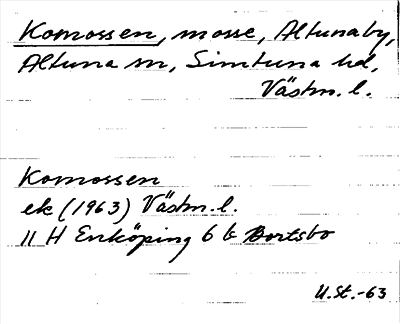 Komossen, mosse, Altunaby,
Altuna sn, Simtuna hd,
Västm. l.
Komossen
ek (1963) Västm. l.
11 H Enköping 6 b Bortsbo
U.St.-63